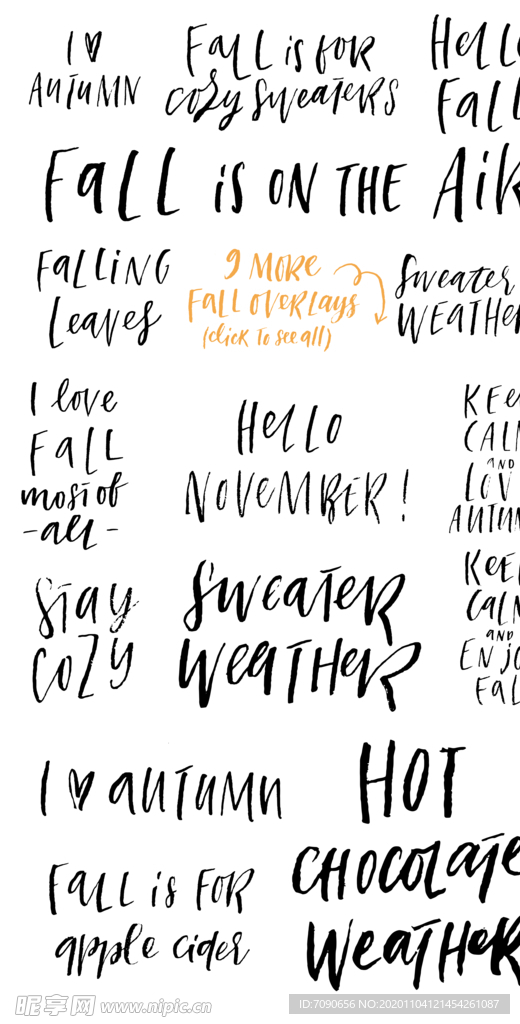 I ♥
AUTUMN
FALL is FOR
cozy sweaters
HELLO
FALL
FALL is ON THE AIR
FALLING
Leaves
9 MORE
FALL OVERLAYS
(click to see all)
Sweater
WEATHER
I love
FALL
most of
-all-
HELLO
NOVEMBER!
KEE
CALM
AND
LOV
AUTUM
STAY
COZY
Sweater
WEATHER
KEEP
CALM
AND
ENJO
FAL
I ♥ AUTUMN
HOT
CHOCOLATE
WEATHER
FALL is FOR
apple cider
昵享网 www.nipic.cn
ID:7090656 NO:20201104121454261087